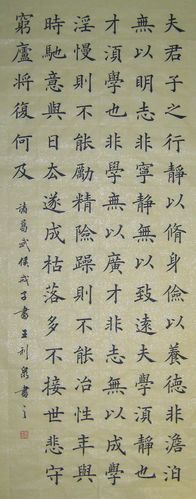 夫君子之行靜以脩身儉以養德非澹泊
無以明志非寧靜無以致遠夫學湏靜也
才湏學也非學無以廣才非志無以成學
淫慢則不能勵精險躁則不能冶性年與
時馳意與日去遂成枯落多不接世悲守
窮廬將復何及
諸葛武侯戒子書王利泉書之